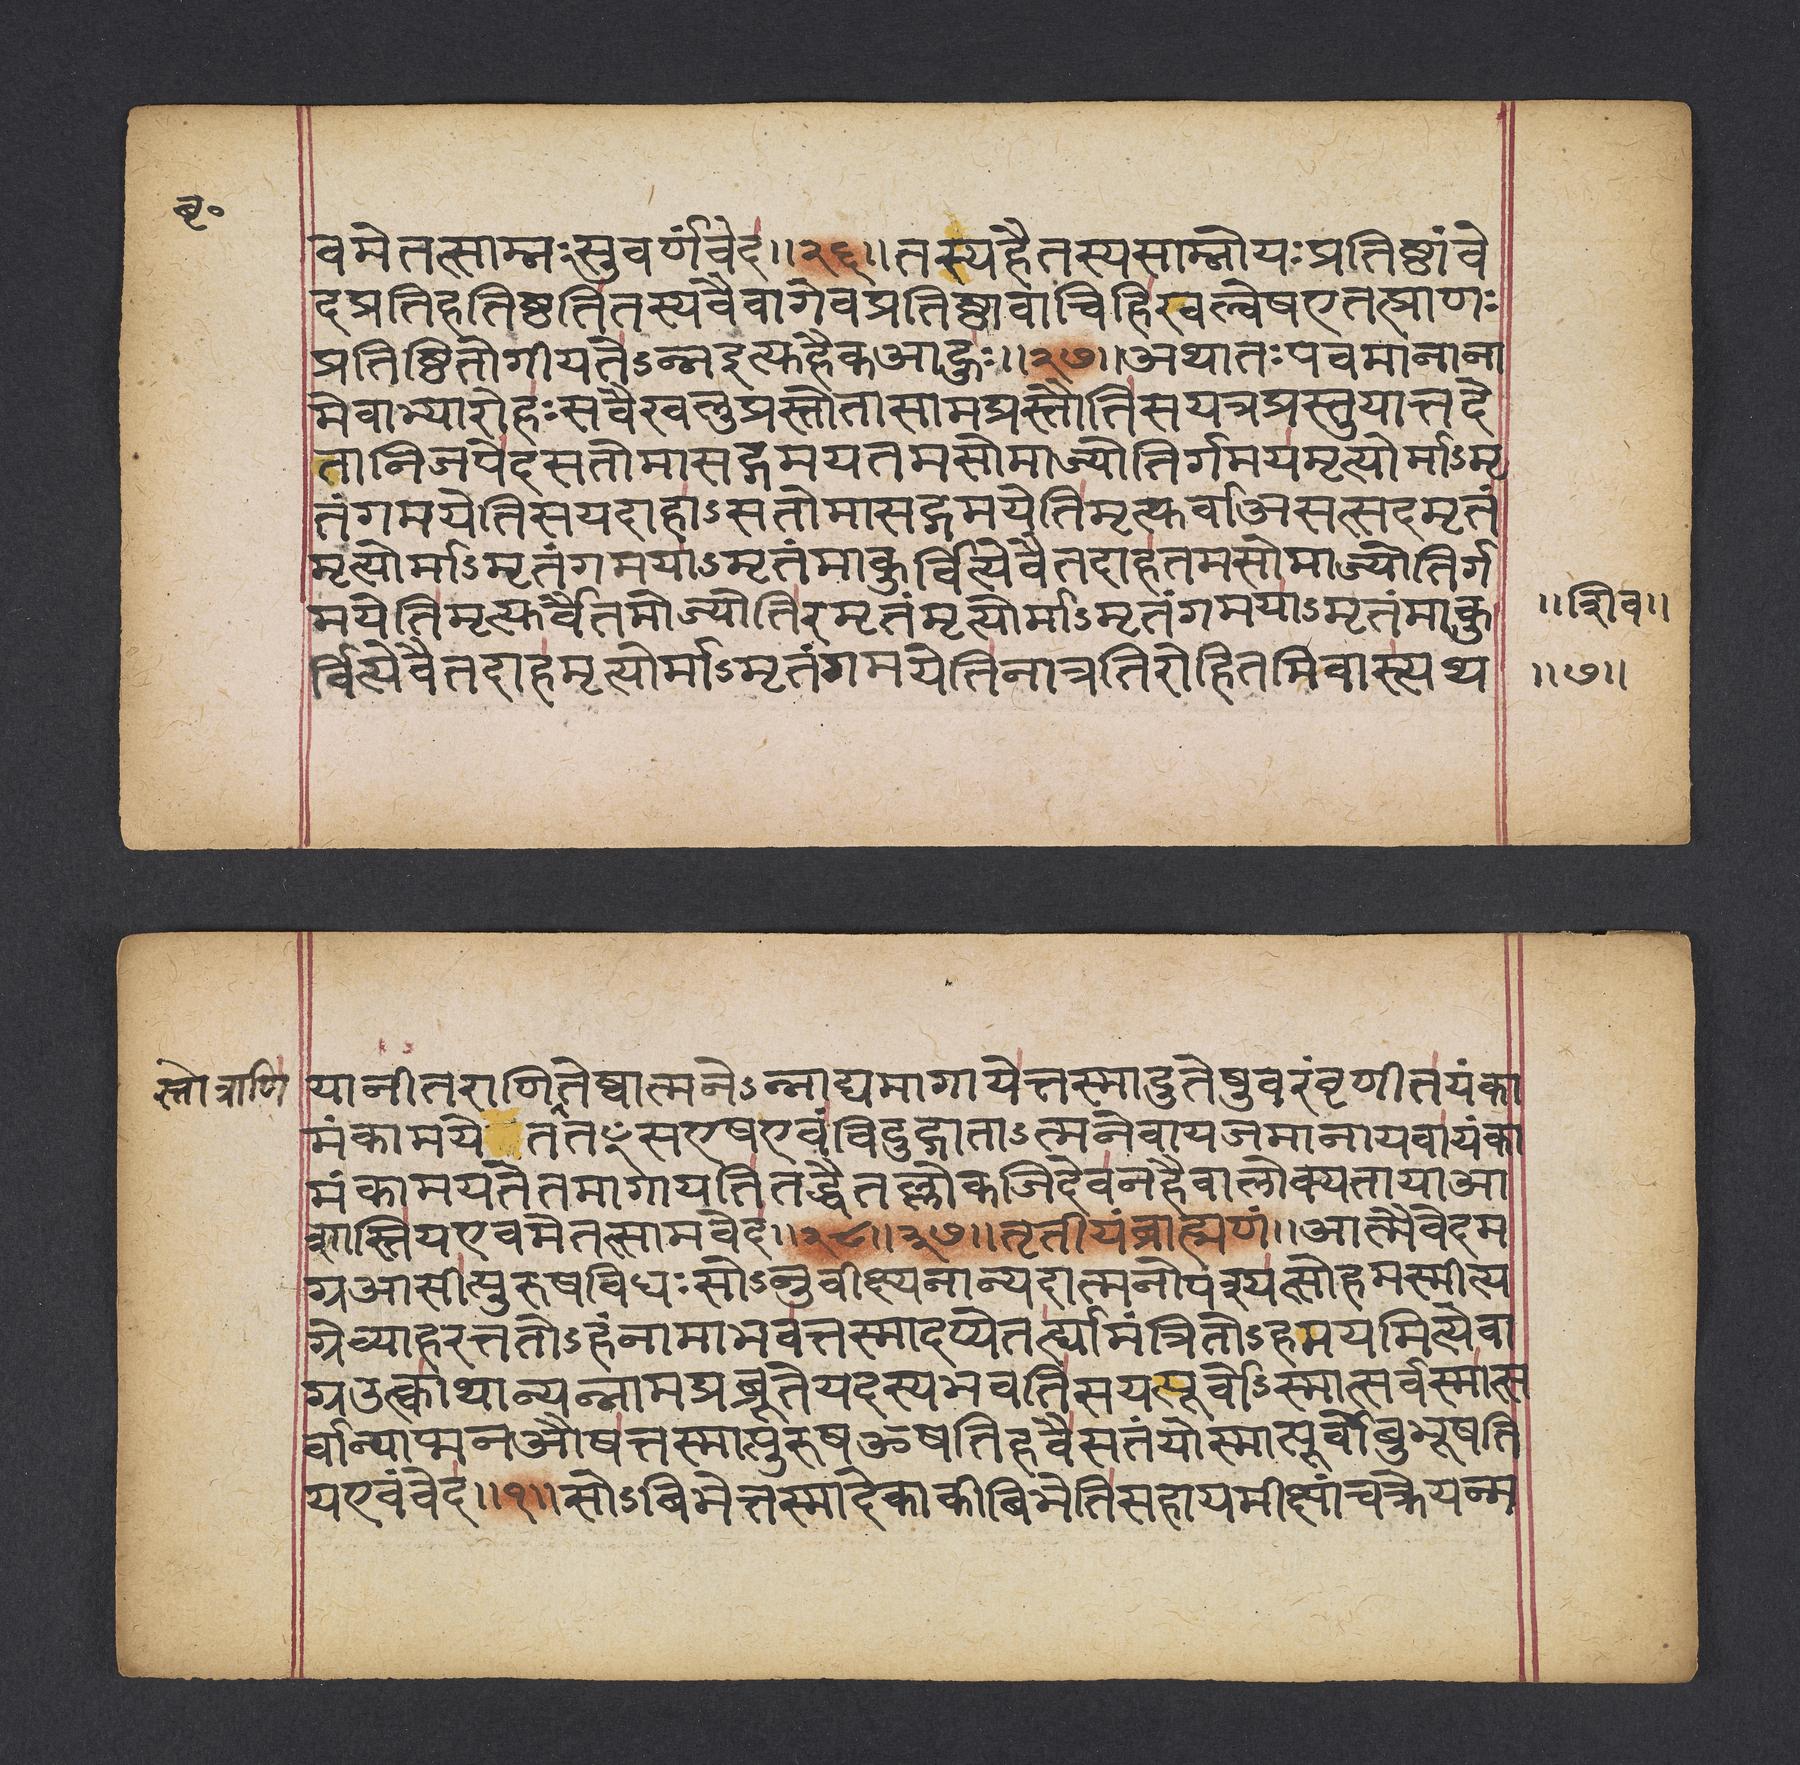 बृ॰
वमेतत्साम्नःसुवर्णंवेद॥२६॥तस्यहैतस्यसाम्नोयःप्रतिष्ठांवे
दप्रतिहतिष्ठतितस्यवैवागेवप्रतिष्ठावाचिहिखल्वेषएतत्प्राणः
प्रतिष्ठितोगीयतेऽन्नइत्युहैकआहुः॥२७॥अथातःपवमानाना
मेवाभ्यारोहःसवैखलुप्रस्तोतासामप्रस्तौतिसयत्रप्रस्तुयात्तदे
तानिजपेदसतोमासद्गमयतमसोमाज्योतिर्गमयमृत्योर्माऽमृ
तंगमयेतिसयदाहाऽसतोमासद्गमयेतिमृत्युर्वाअसत्सदमृतं
मृत्योर्माऽमृतंगमयाऽमृतंमाकुर्वित्येवैतदाहतमसोमाज्योतिर्ग
मयेतिमृत्युर्वैतमोज्योतिरमृतंमृत्योर्माऽमृतंगमयाऽमृतंमाकु
॥शिव॥
र्वित्येवैतदाहमृत्योर्माऽमृतंगमयेतिनात्रतिरोहितमिवास्त्यथ
॥७॥
स्तोत्राणि
यानीतराणितेष्वात्मनेऽन्नाद्यमागायेत्तस्मादुतेषुवरंवृणीतयंका
मंकामयेततꣳसएषएवंविदुद्गाताऽत्मनेवायजमानायवायंका
मंकामयतेतमागायतितद्धैतल्लोकजिदेवनहैवालोक्यतायाआ
शास्तियएवमेतत्सामवेद॥२८॥३७॥तृतीयंब्राह्मणं॥आत्मैवेदम
ग्रआसीत्पुरुषविधःसोऽनुवीक्ष्यनान्यदात्मनोपश्यत्सोहमस्मीत्य
ग्रेव्याहरत्ततोऽहंनामाभवत्तस्मादप्येतर्ह्यामंत्रितोऽहमयमित्येवा
ग्रउत्काथान्यन्नामप्रब्रूतेयदस्यभवतिसयत्पूर्वोऽस्मात्सर्वस्मात्स
र्वान्पाप्मनऔषत्तस्मात्पुरुषओषतिहवैसतंयोस्मात्पूर्वोबुभूषति
यएवंवेद॥१॥सोऽबिभेत्तस्मादेकाकीबिभेतिसहायमीक्षांचक्रेयन्म